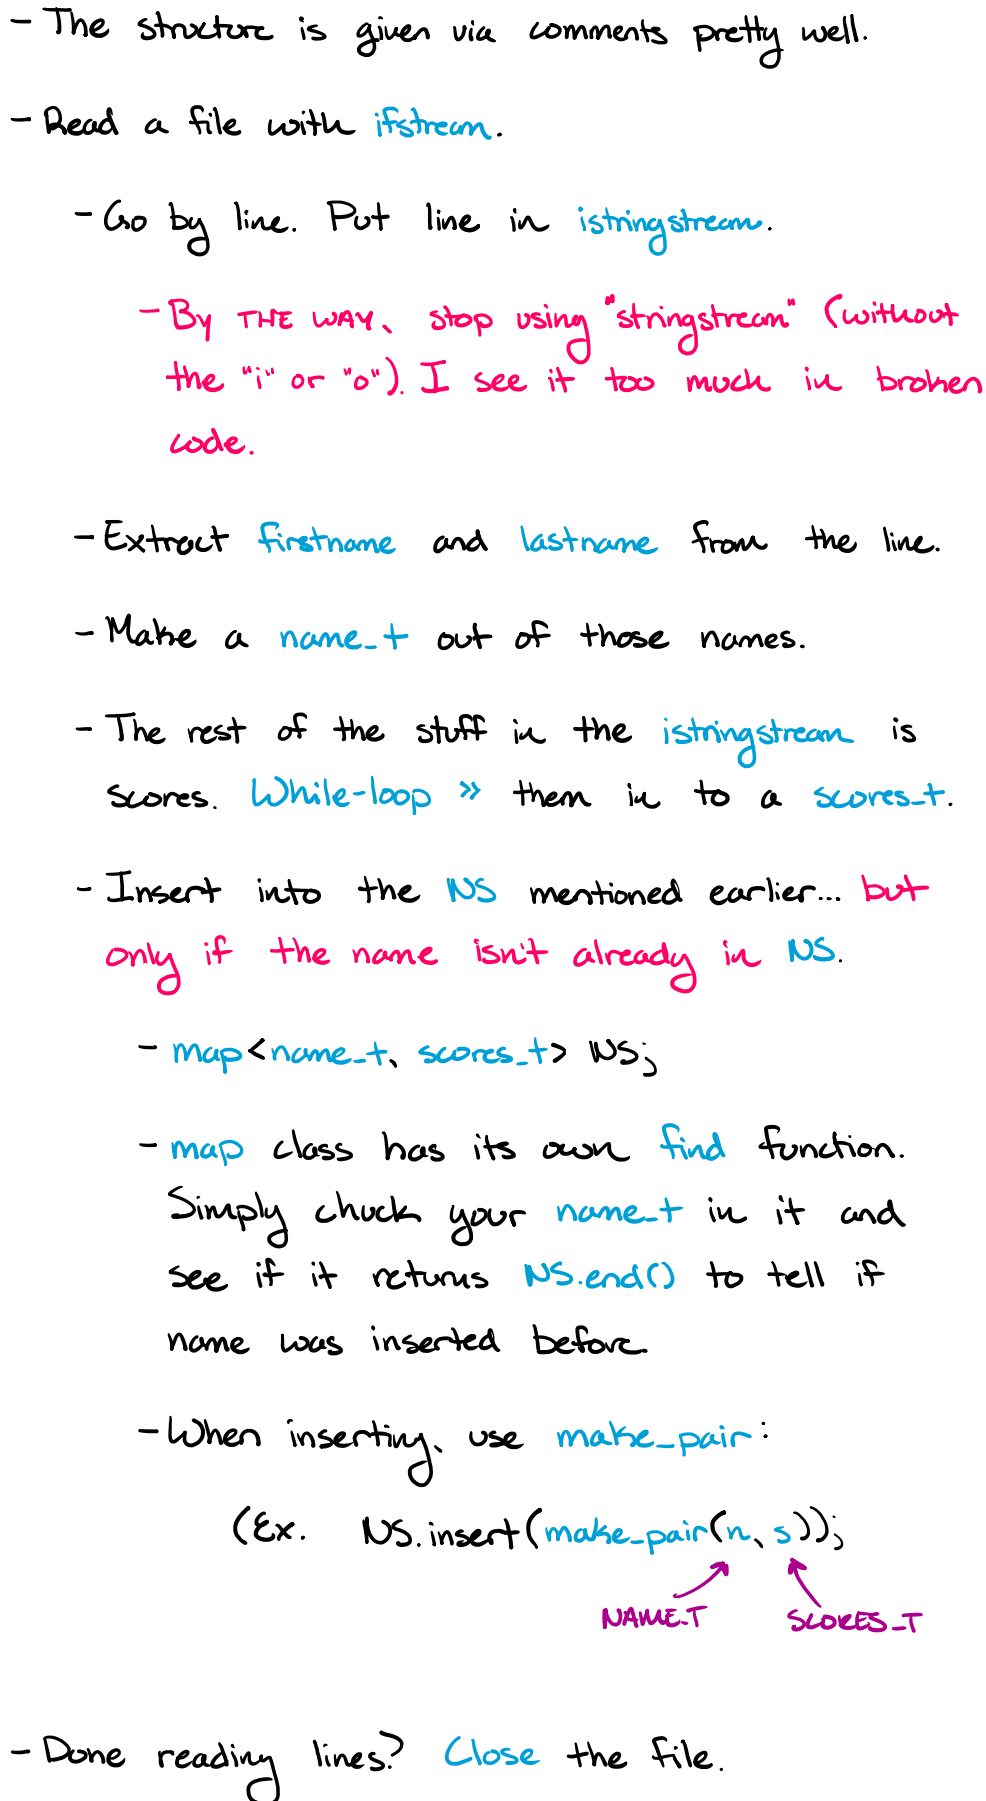 - The structure is given via comments pretty well.
- Read a file with ifstream.
- Go by line. Put line in istringstream.
- By THE WAY, stop using "stringstream" (without
the "i" or "o"). I see it too much in broken
code.
- Extract firstname and lastname from the line.
- Make a name_t out of those names.
- The rest of the stuff in the istringstream is
scores. While-loop >> them in to a scores_t.
- Insert into the NS mentioned earlier... but
only if the name isn't already in NS.
- map<name_t, scores_t> NS;
- map class has its own find function.
Simply chuck your name_t in it and
see if it returns NS.end() to tell if
name was inserted before.
- When inserting, use make_pair:
(Ex. NS.insert(make_pair(n, s));
NAME_T SCORES_T
- Done reading lines? Close the file.